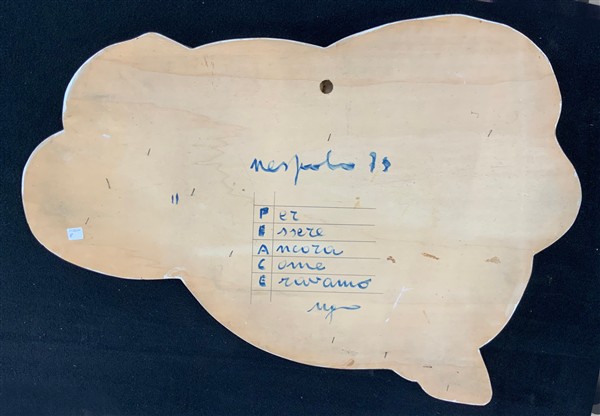 nespolo 89
Per
Essere
Ancora
Come
Eravamo